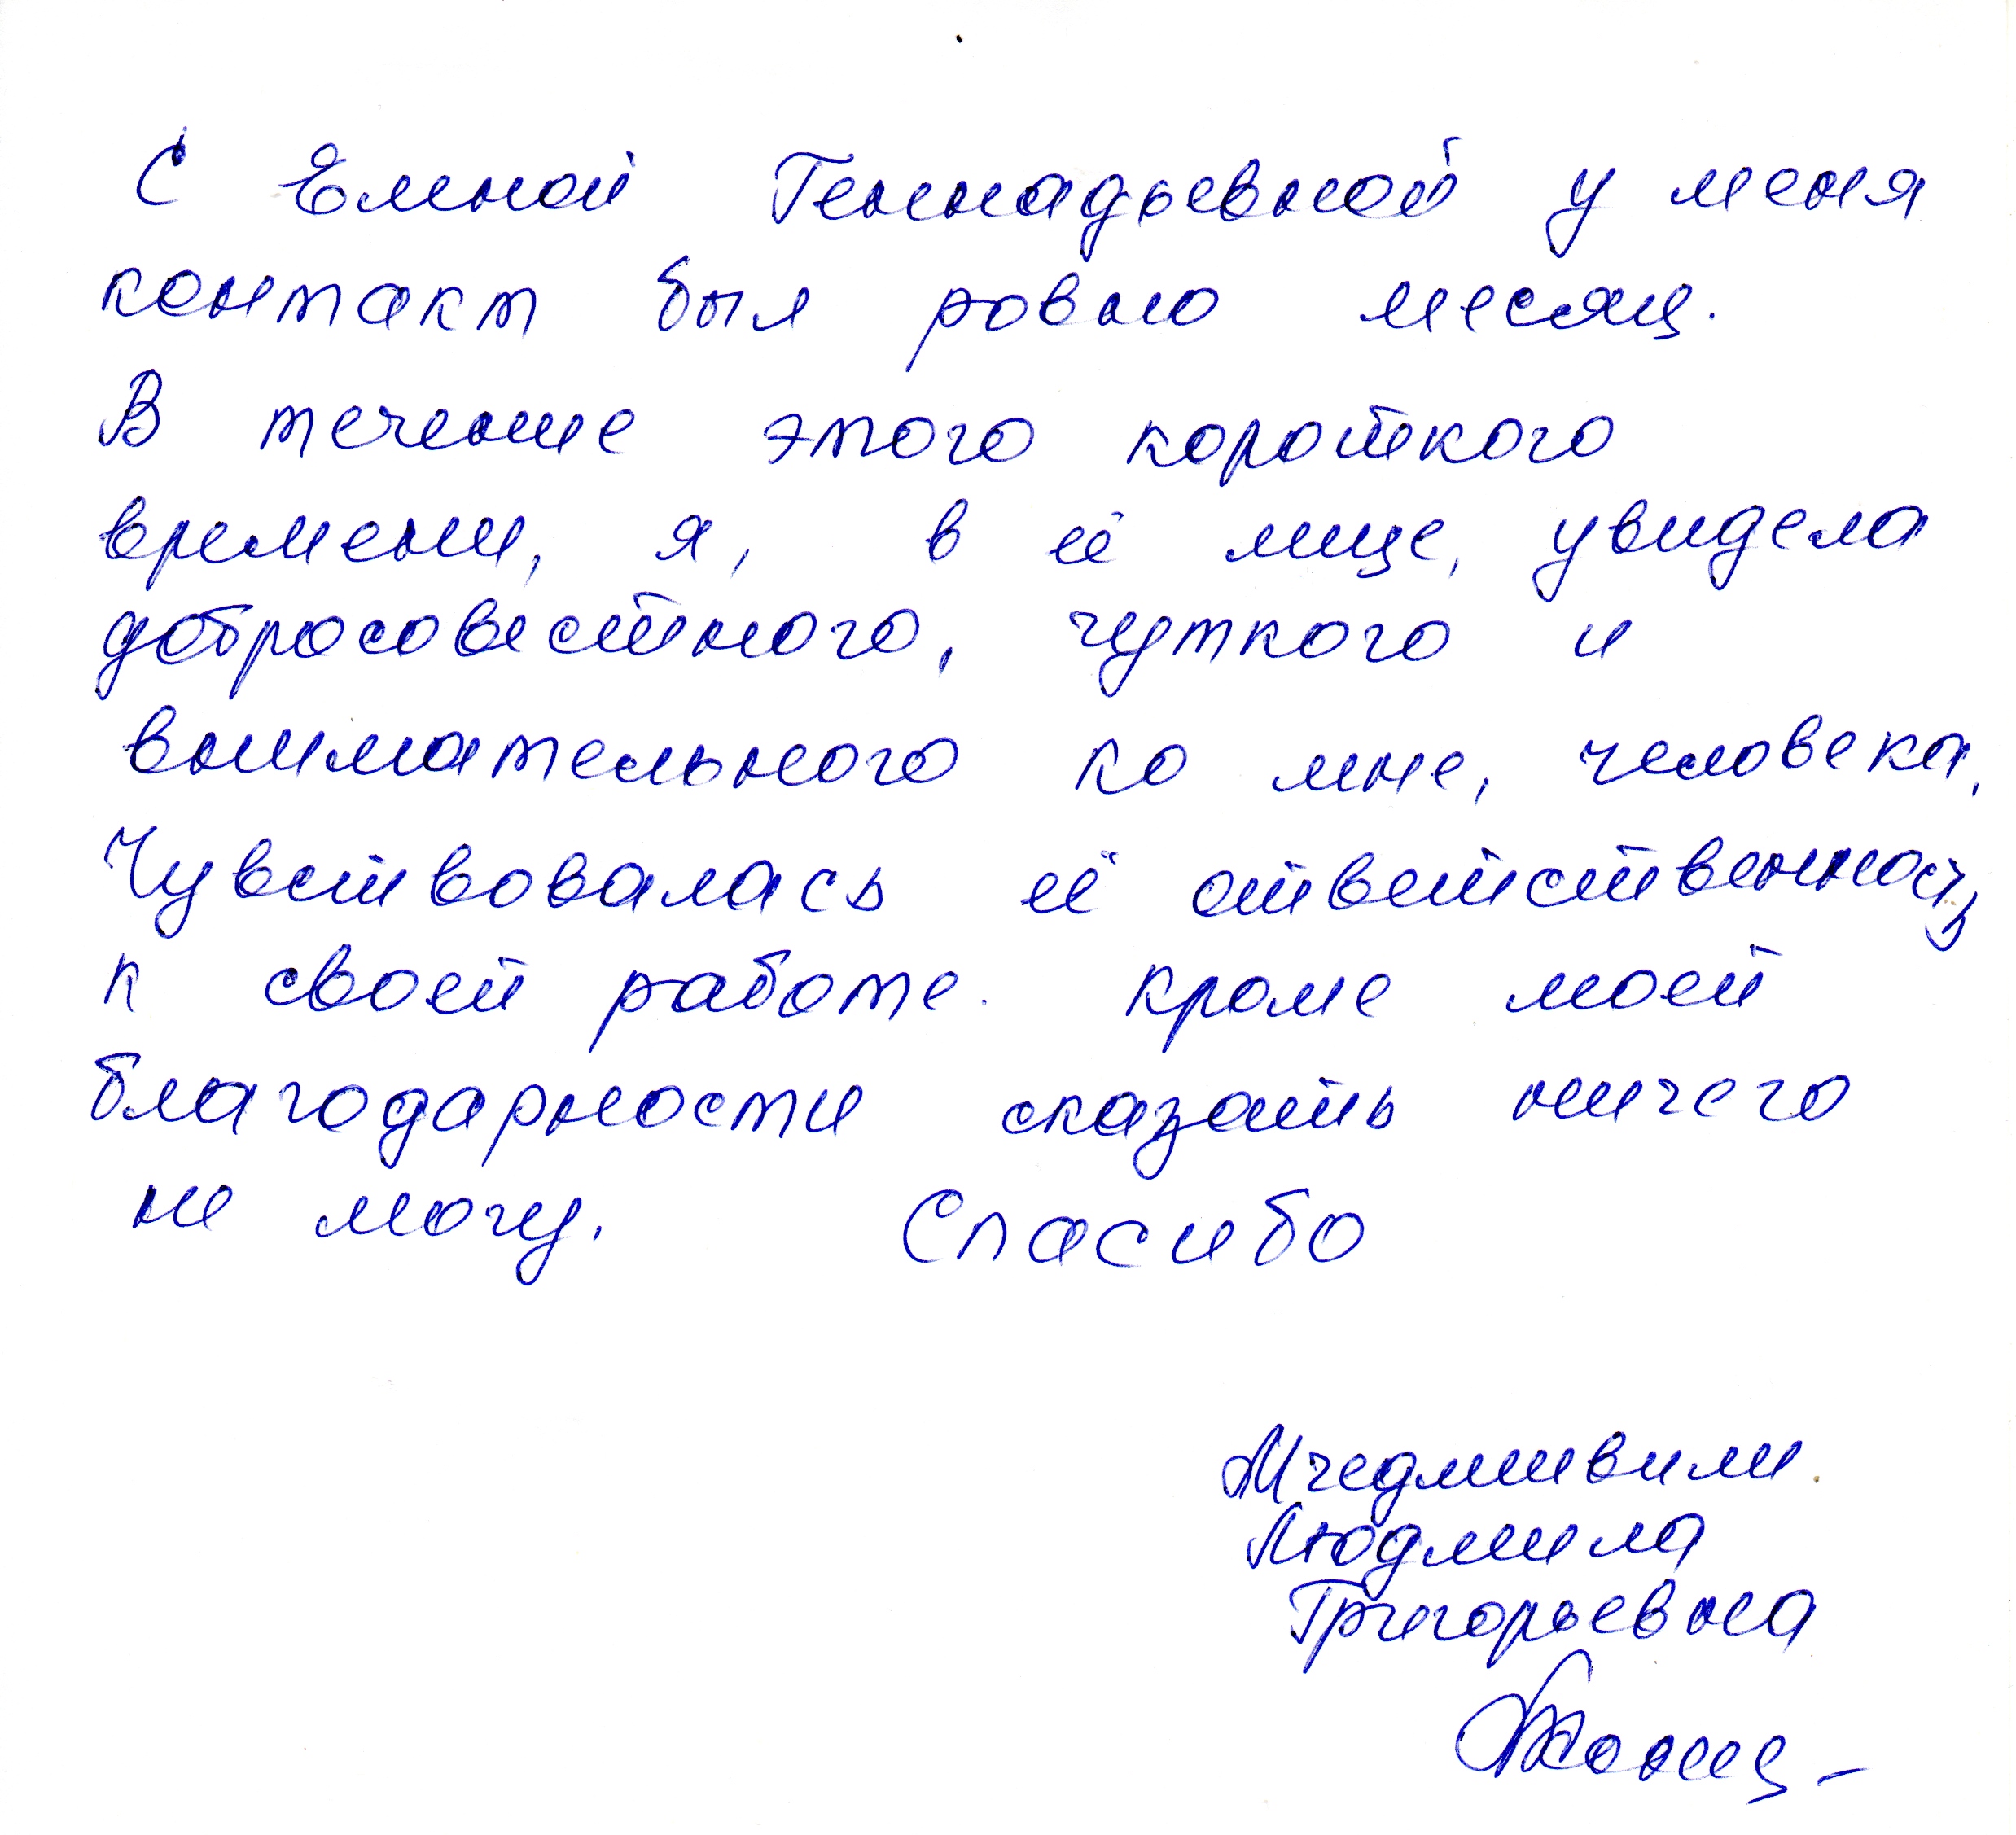 С Еленой Геннадьевной у меня
контакт был ровно месяц.
В течение этого короткого
времени, я, в её лице, увидела
добросовестного, чуткого и
внимательного ко мне, человека,
Чувствовалась её ответственность
к своей работе. кроме моей
благодарности сказать ничего
не могу. Спасибо
Мчедлишвили
Людмила
Григорьевна